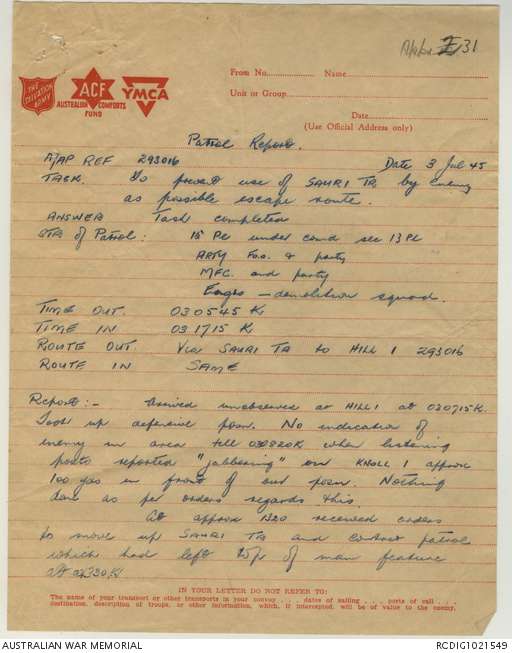 Appx 31
THE SALVATION ARMY
ACF
AUSTRALIAN COMFORTS FUND
YMCA
From No. Name
Unit or Group
Date
(Use Official Address only)
Patrol Report.
MAP REF 293016 Date 3 Jul 45
TASK. To prevent use of SAURI TR. by enemy
as possible escape route.
ANSWER Task completed
STR of Patrol: 15 Pl under comd sec 13 Pl
ARTY F.O.O. & party
MFC. and party
Engrs — demolition squad.
TIME OUT. 030545 K
TIME IN 031715 K
ROUTE OUT. Via SAURI TR to HILL 1 293016
ROUTE IN SAME
Report:- Arrived unobserved at HILL 1 at 030715K.
Took up defensive posn. No indication of
enemy in area till 030820K when listening
posts reported "jabbering" on KNOLL 1 approx
100 yds in front of our posn. Nothing
done as per orders regards this.
At approx 1320 received orders
to move up SAURI TR and contact patrol
which had left top of main feature
at
IN YOUR LETTER DO NOT REFER TO:
The name of your transport or other transports in your convoy . . . dates of sailing . . . ports of call . . .
destination, description of troops, or other information, which, if intercepted, will be of value to the enemy.
AUSTRALIAN WAR MEMORIAL RCDIG1021549